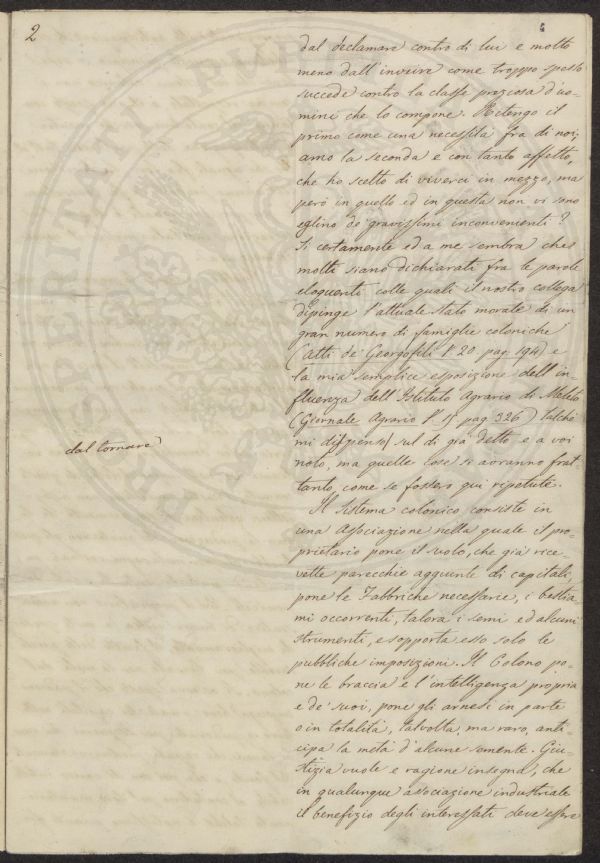 2
dal declamare contro di lui e molto
meno dall'inveire come troppo spesso
succede contro la classe preziosa d'uo=
mini che lo compone. Ritengo il
primo come una necessità fra di noi,
amo la seconda e con tanto affetto,
che ho scelto di viverci in mezzo, ma
però in quello ed in questa non vi sono
eglino de' gravissimi inconvenienti?
Sì certamente ed a me sembra che
molti siano dichiarati fra le parole
eloquenti colle quali il nostro collega
dipinge l'attuale stato morale di un
gran numero di famiglie coloniche
(Atti de' Georgofili V. 20 pag. 194) e
la mia semplice esposizione dell'in=
fluenza dell'Istituto Agrario di Meleto
(Giornale Agrario V. pag. 326) talchè
dal tornare
mi dispenso sul di già detto e a voi
noto, ma quelle cose si avranno frat=
tanto, come se fossero qui ripetute.
Il sistema colonico consiste in
una Associazione nella quale il pro=
prietario pone il suolo, che già rice=
vette parecchie aggiunte di capitali,
pone le Fabbriche necessarie, i bestia=
mi occorrenti, talora i semi ed alcuni
strumenti, e sopporta esso solo le
pubbliche imposizioni. Il Colono po=
ne le braccia e l'intelligenza propria
e de' suoi, pone gli arnesi in parte
o in totalità, talvolta, ma raro, anti=
cipa la metà d'alcune semente. Giu=
stizia vuole e ragione insegna, che
in qualunque associazione industriale
il benefizio degli interessati deve essere